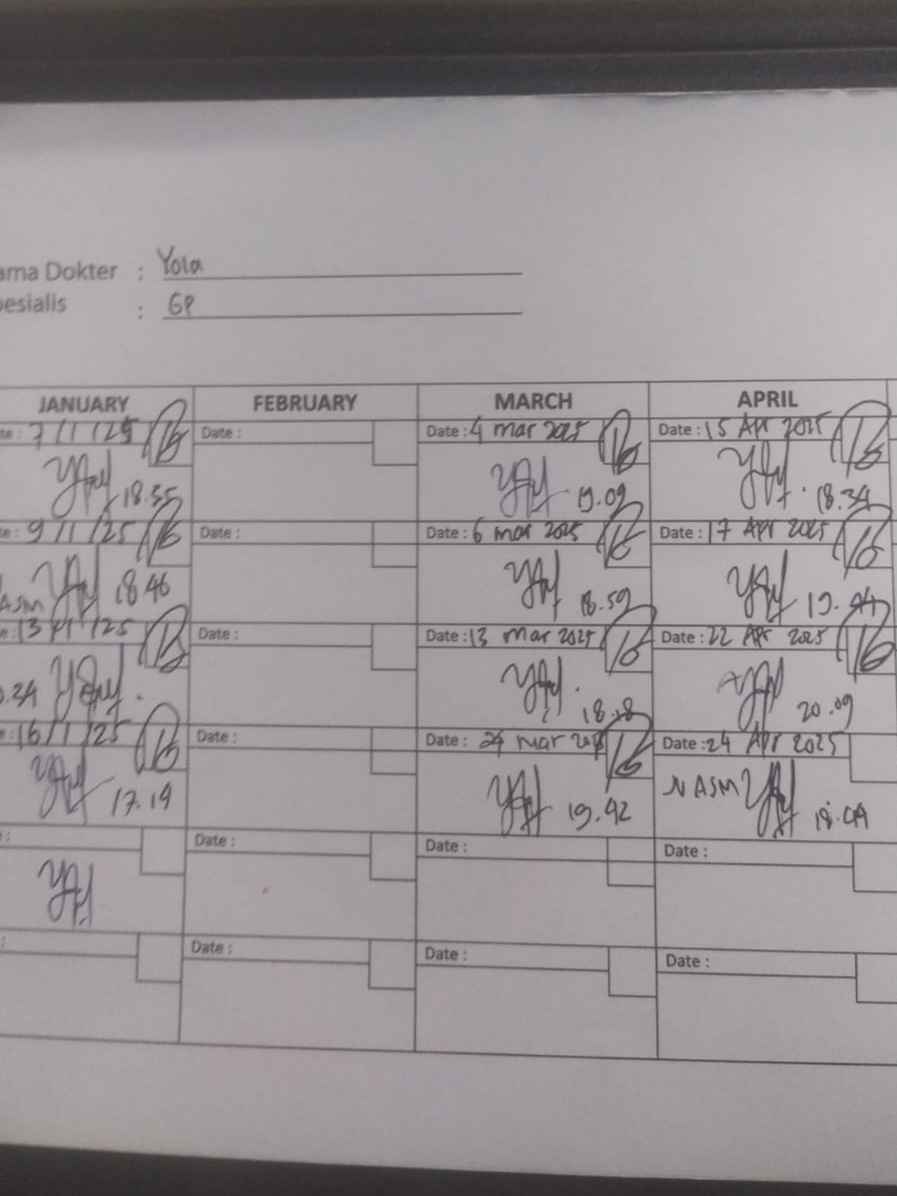 ama Dokter : Yola
pesialis : GP
JANUARY FEBRUARY MARCH APRIL
te : 7 / 1 / 25 Date : Date : 4 mar 2025 Date : 15 Apr 2025
18.35 19.09 18.34
te : 9 / 1 / 25 Date : Date : 6 mar 2025 Date : 17 Apr 2025
ASM 18.46 18.59 19.
e : 13 / 1 / 25 Date : Date : 13 mar 2025 Date : 22 Apr 2025
.24 20.09
e : 16 / 1 / 25 Date : Date : 24 mar Date : 24 Apr 2025
17.19 19.42 NASM
: Date : Date : Date :
: Date : Date : Date :